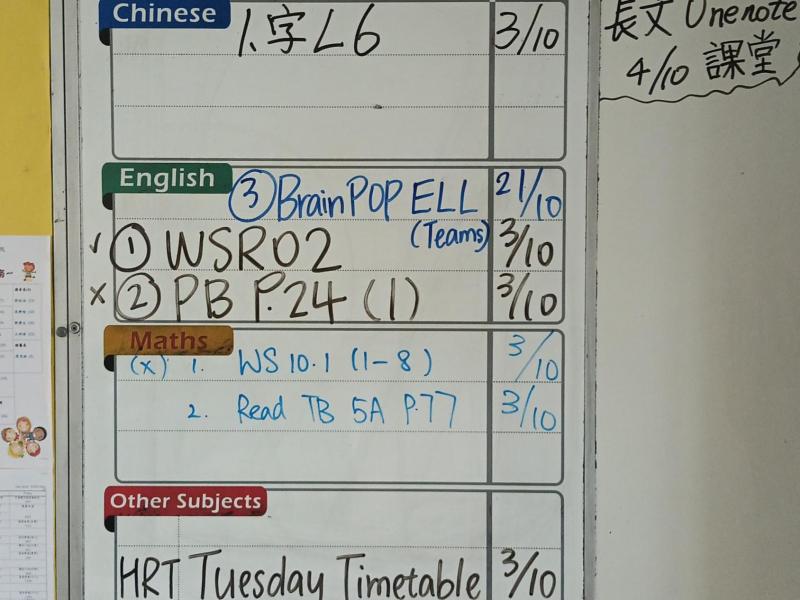 Chinese
1. 字 L6 3/10
長文 Onenote
4/10 課堂
English
③ BrainPOP ELL 21/10
(Teams)
✓ ① WSR02 3/10
x ② PB P.24 (1) 3/10
Maths
(x) 1. WS 10.1 (1-8) 3/10
2. Read TB 5A P.77 3/10
Other Subjects
HRT Tuesday Timetable 3/10